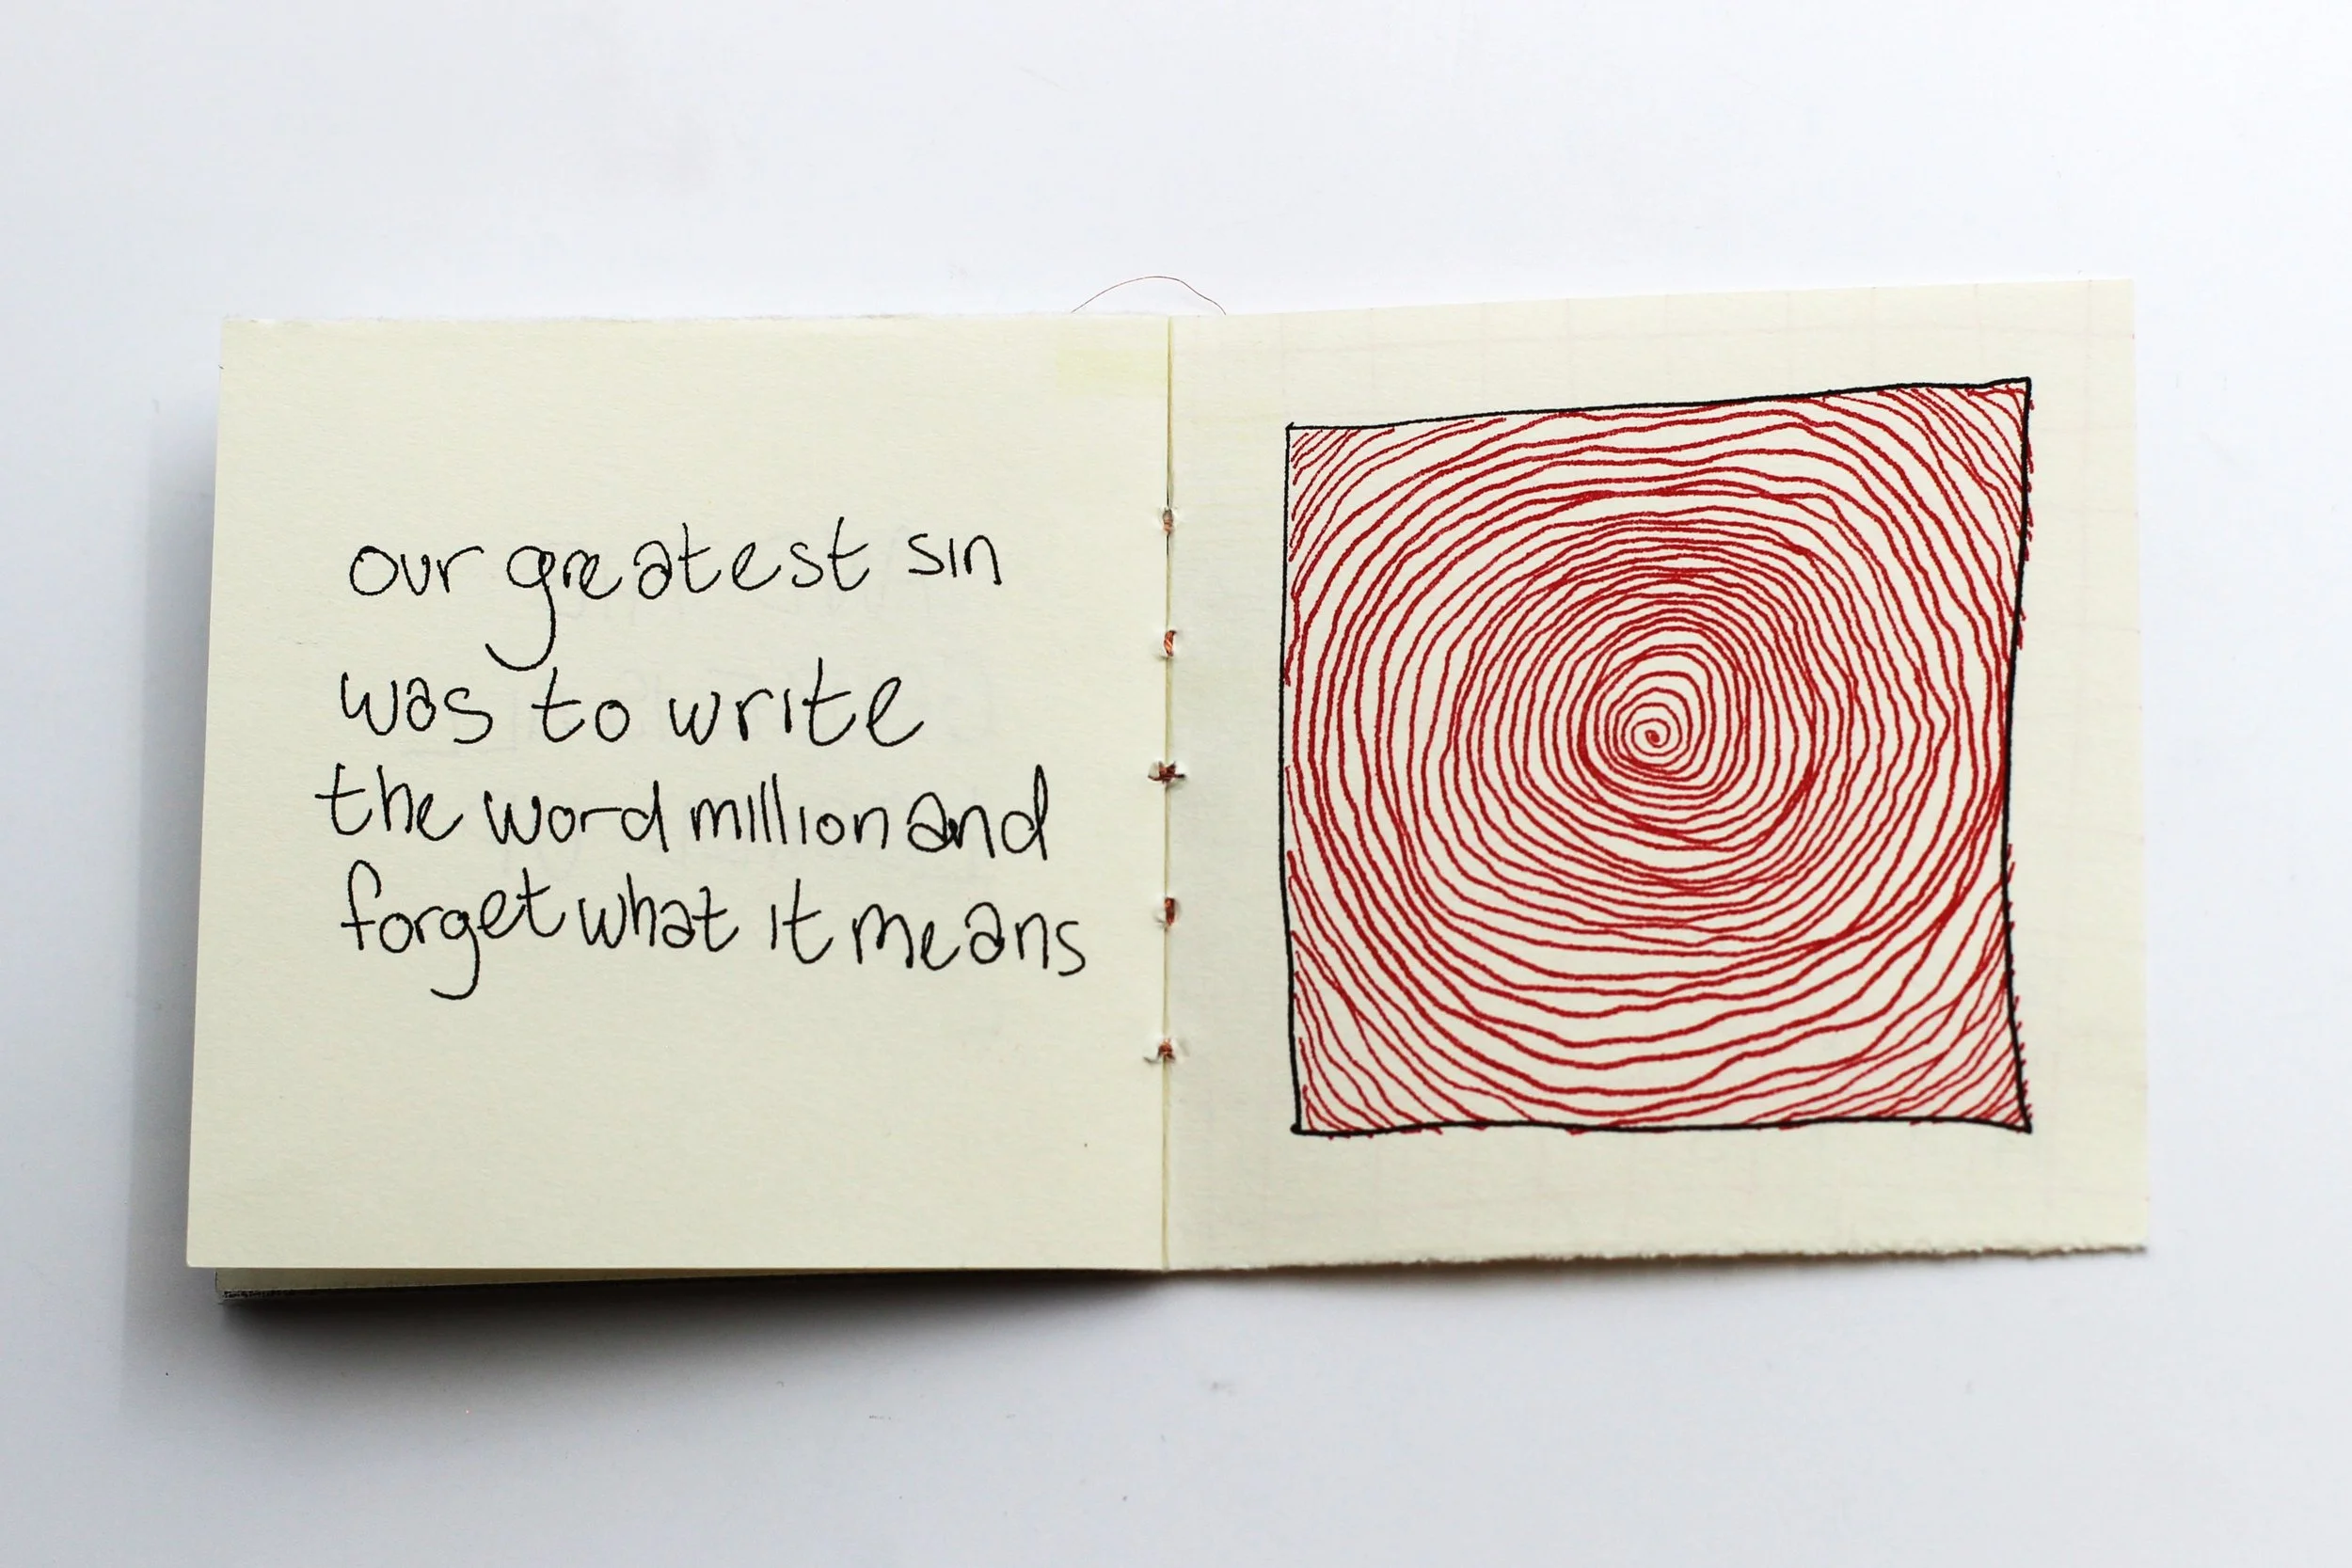 our greatest sin
was to write
the word million and
forget what it means